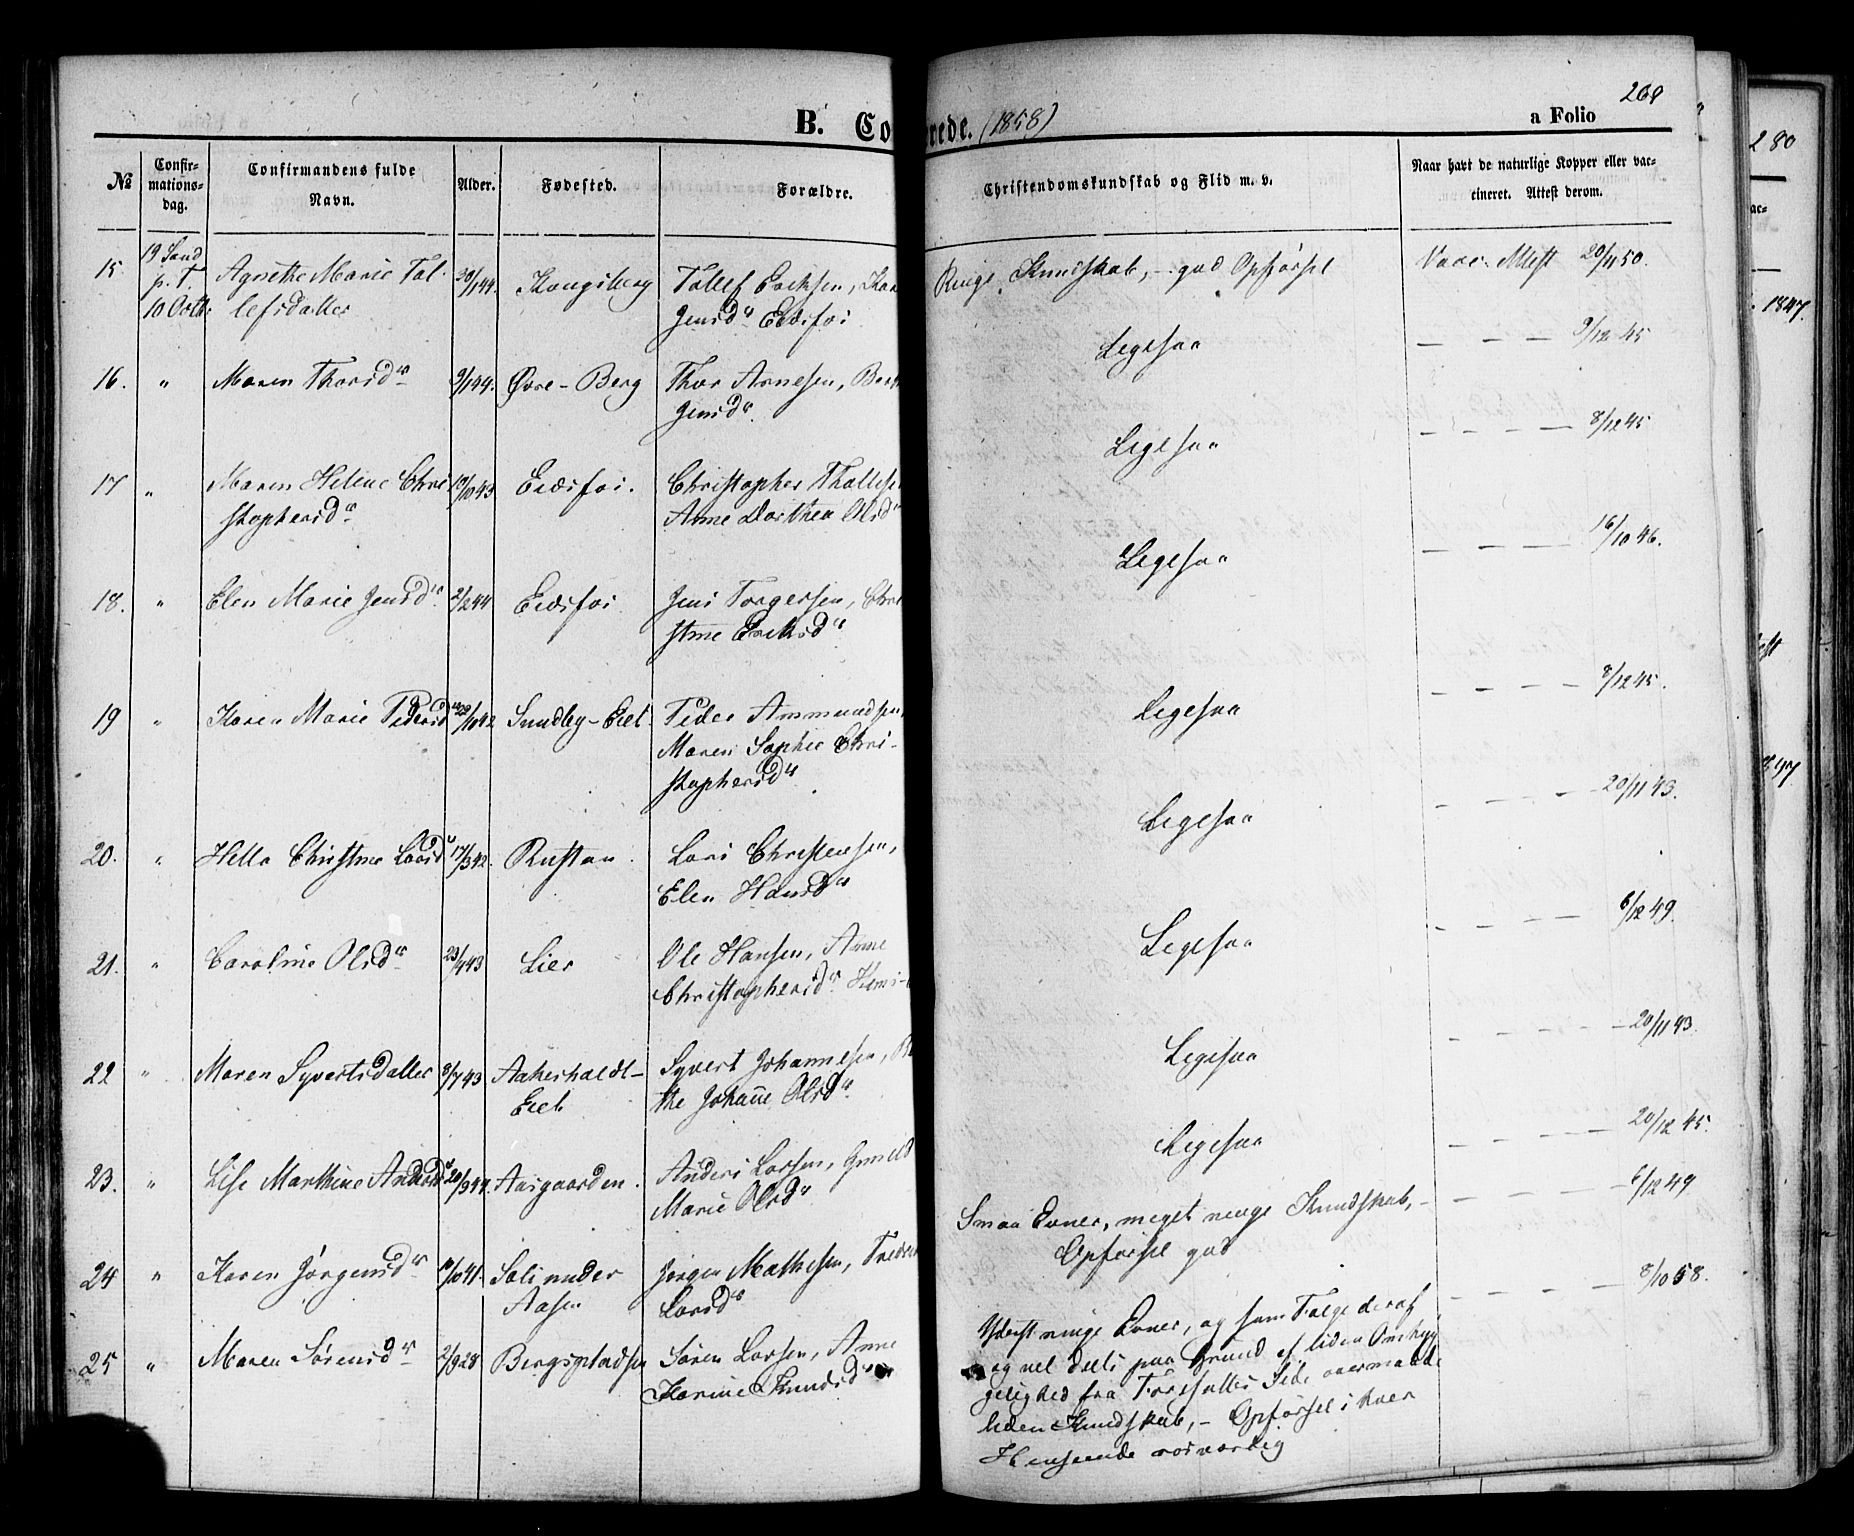 B. Co
rede. (1858)
a Folio
№
Confir-
mations-
dag.
Confirmandens fulde
Navn.
Alder.
Fødested.
Forældre.
Christendomskundskab og Flid m. v.
Naar havt de naturlige Kopper eller vac-
cineret. Attest derom.
15. 19 Sønd p. T. 10 Octbr Agnethe Marie Tol-
lefsdatter
30/1 44. Kongsberg
Tollef Erichsen, Kar
Jensdr Eidsfos
Ringe Kundskab, - god Opførsel
Vacc. Attest 20/11 50.
16. " Maren Thorsdr 9/1 44. Øvre-Berg
Thor Arnesen, Bert
Jensdr
Ligesaa
— — — 9/12 45
17 " Maren Helene Chri
stophersdr
19/10 43 Eidsfos.
Christopher Thollefse
Anne Dorthea Olsdr
Ligesaa
— — — 8/12 45
18. " Elen Marie Jensdr 2/2 44 Eidsfos
Jens Torgersen, Chri
stine Ericksdr
Ligesaa
— — — 16/10 46.
19 " Karen Marie Pedersdr /10 42 Sundby-Eiet
Peder Ammundsen,
Maren Sophie Chri-
stophersdr
Ligesaa
— — — 8/12 45.
20. " Helle Christine Larsdr 17/3 42. Rustan.
Lars Christensen,
Elen Hansdr
Ligesaa
— — — 20/11 43.
21. " Caroline Olsdr 23/4 43 Lier
Ole Hansen, Anne
Christophersdr
Ligesaa
— — — 6/12 49.
22 " Maren Syvertsdatter 8/7 43 Aakerholdt-
Eiet
Syvert Johannesen, B
the Johanne Olsdr
Ligesaa
— — — 20/11 43.
23. " Lise Marthine Andersdr 20/3 44. Aasgaarden.
Anders Larsen, Gunild
Marie Olsdr
Ligesaa
— — — 20/12 45.
24 " Karen Jørgensdr 10/10 41. Soli under
Aasen
Jørgen Mathesen,
Larsdr
Smaa Evner, meget ringe Kundskab, -
Opførsel god
— — — 6/12 49
25 " Maren Sørensdr 2/9 28 Bergspladsen
Søren Larsen, Anne
Karine Knudsdr
Yderst ringe Evner, og som Følge deraf
og vel deels paa Grund af liden Omhyg
gelighed fra Forældres Side overmaade
liden Kundskab, - Opførsel i hver
Henseende
— — — 8/10 58.
280
1847.